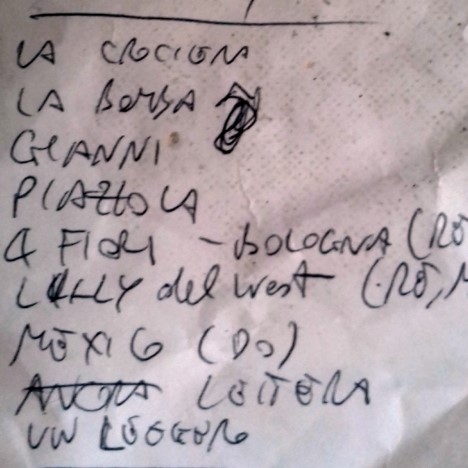 LA CROCIERA
LA BORSA
GIANNI
PIAZZOLA
4 FIORI - BOLOGNA (RE
LILLY del West (RE, M
MEXICO (DO)
ANCORA LETTERA
UN LEGGERO